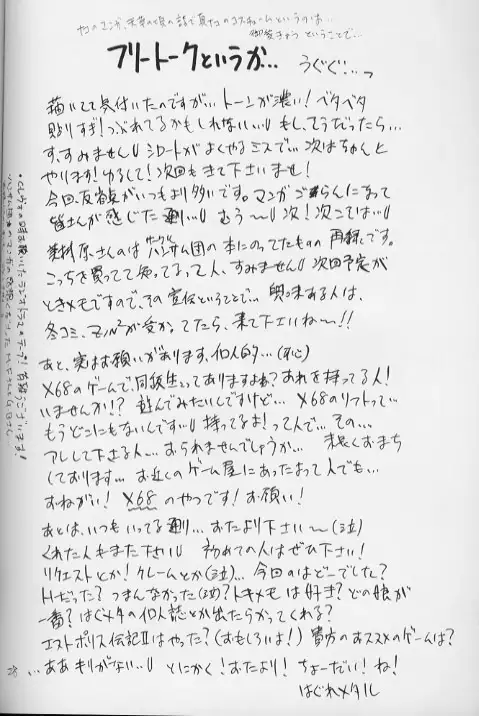 フリートークというか… うぐぐ!…っ
描いてて気付いたのですが… トーンが濃い! ベタベタ
貼りすぎ! つぶれてるかもしれない…もし、そうだったら…
す、すみません シロートがよくやるミスで… 次はちゃんと
やります! ゆるして! 次回もきて下さいませ!
今回、反省点がいつもより多いです。マンガ ごらんになって
皆さんが感じた通り… むう〜 次! 次こそは…
さんのは ハンサム団の本にのってたものの 再録です。
こっちを買ってて知ってるって人、すみません 次回予定が
ときメモですので、その宣伝ということで… 興味ある人は、
冬コミ、 が受かってたら、来て下さいね〜!!
あと、実はお願いがあります、個人的…(汗)
X68のゲームで、同級生ってありますよね? あれを持ってる人!
いませんか!? 遊んでみたいんですけど… X68のソフトって…
もうどこにもないんです 持ってるよ! って人で… その…
アレして下さる人… おられませんでしょうか… 末長くおまち
しております… お近くのゲーム屋にあったよって人でも…
おねがい! X68 のやつです! お願い!
あとは、いつもいってる通り… おたより下さい〜(泣)
くれた人もまた下さい 初めての人はぜひ下さい!
リクエストとか! クレームとか(泣)… 今回のはどーでした?
Hだった? つまんなかった(泣)? トキメモは好き? どの娘が
一番? はぐメタの個人誌とか出たらかってくれる?
エストポリス伝記IIはやった?(おもしろいよ!) 貴方のおススメのゲームは?
…ああ きりがない… とにかく! おたより! ちょーだい! ね!
はぐれメタル